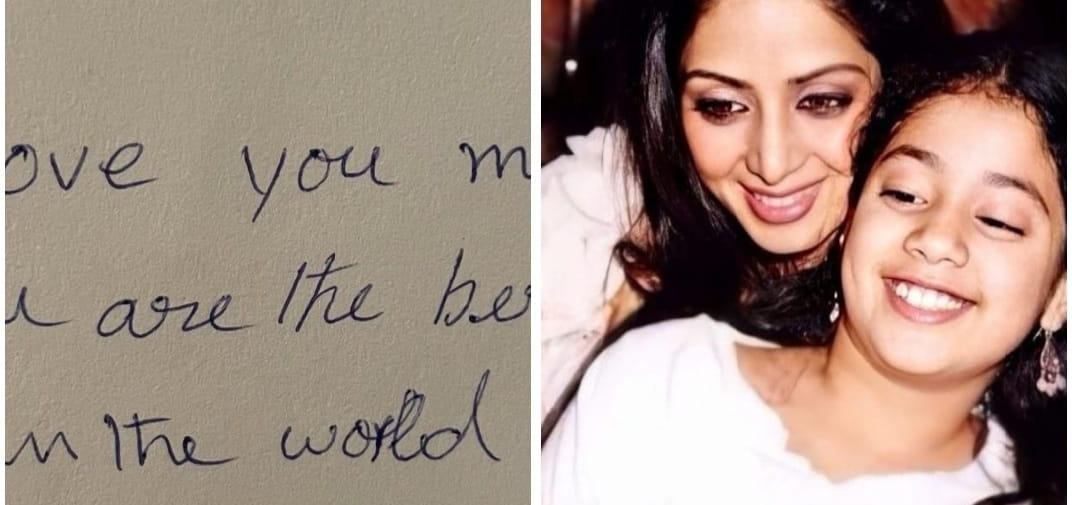 ove you m
are the be
n the world